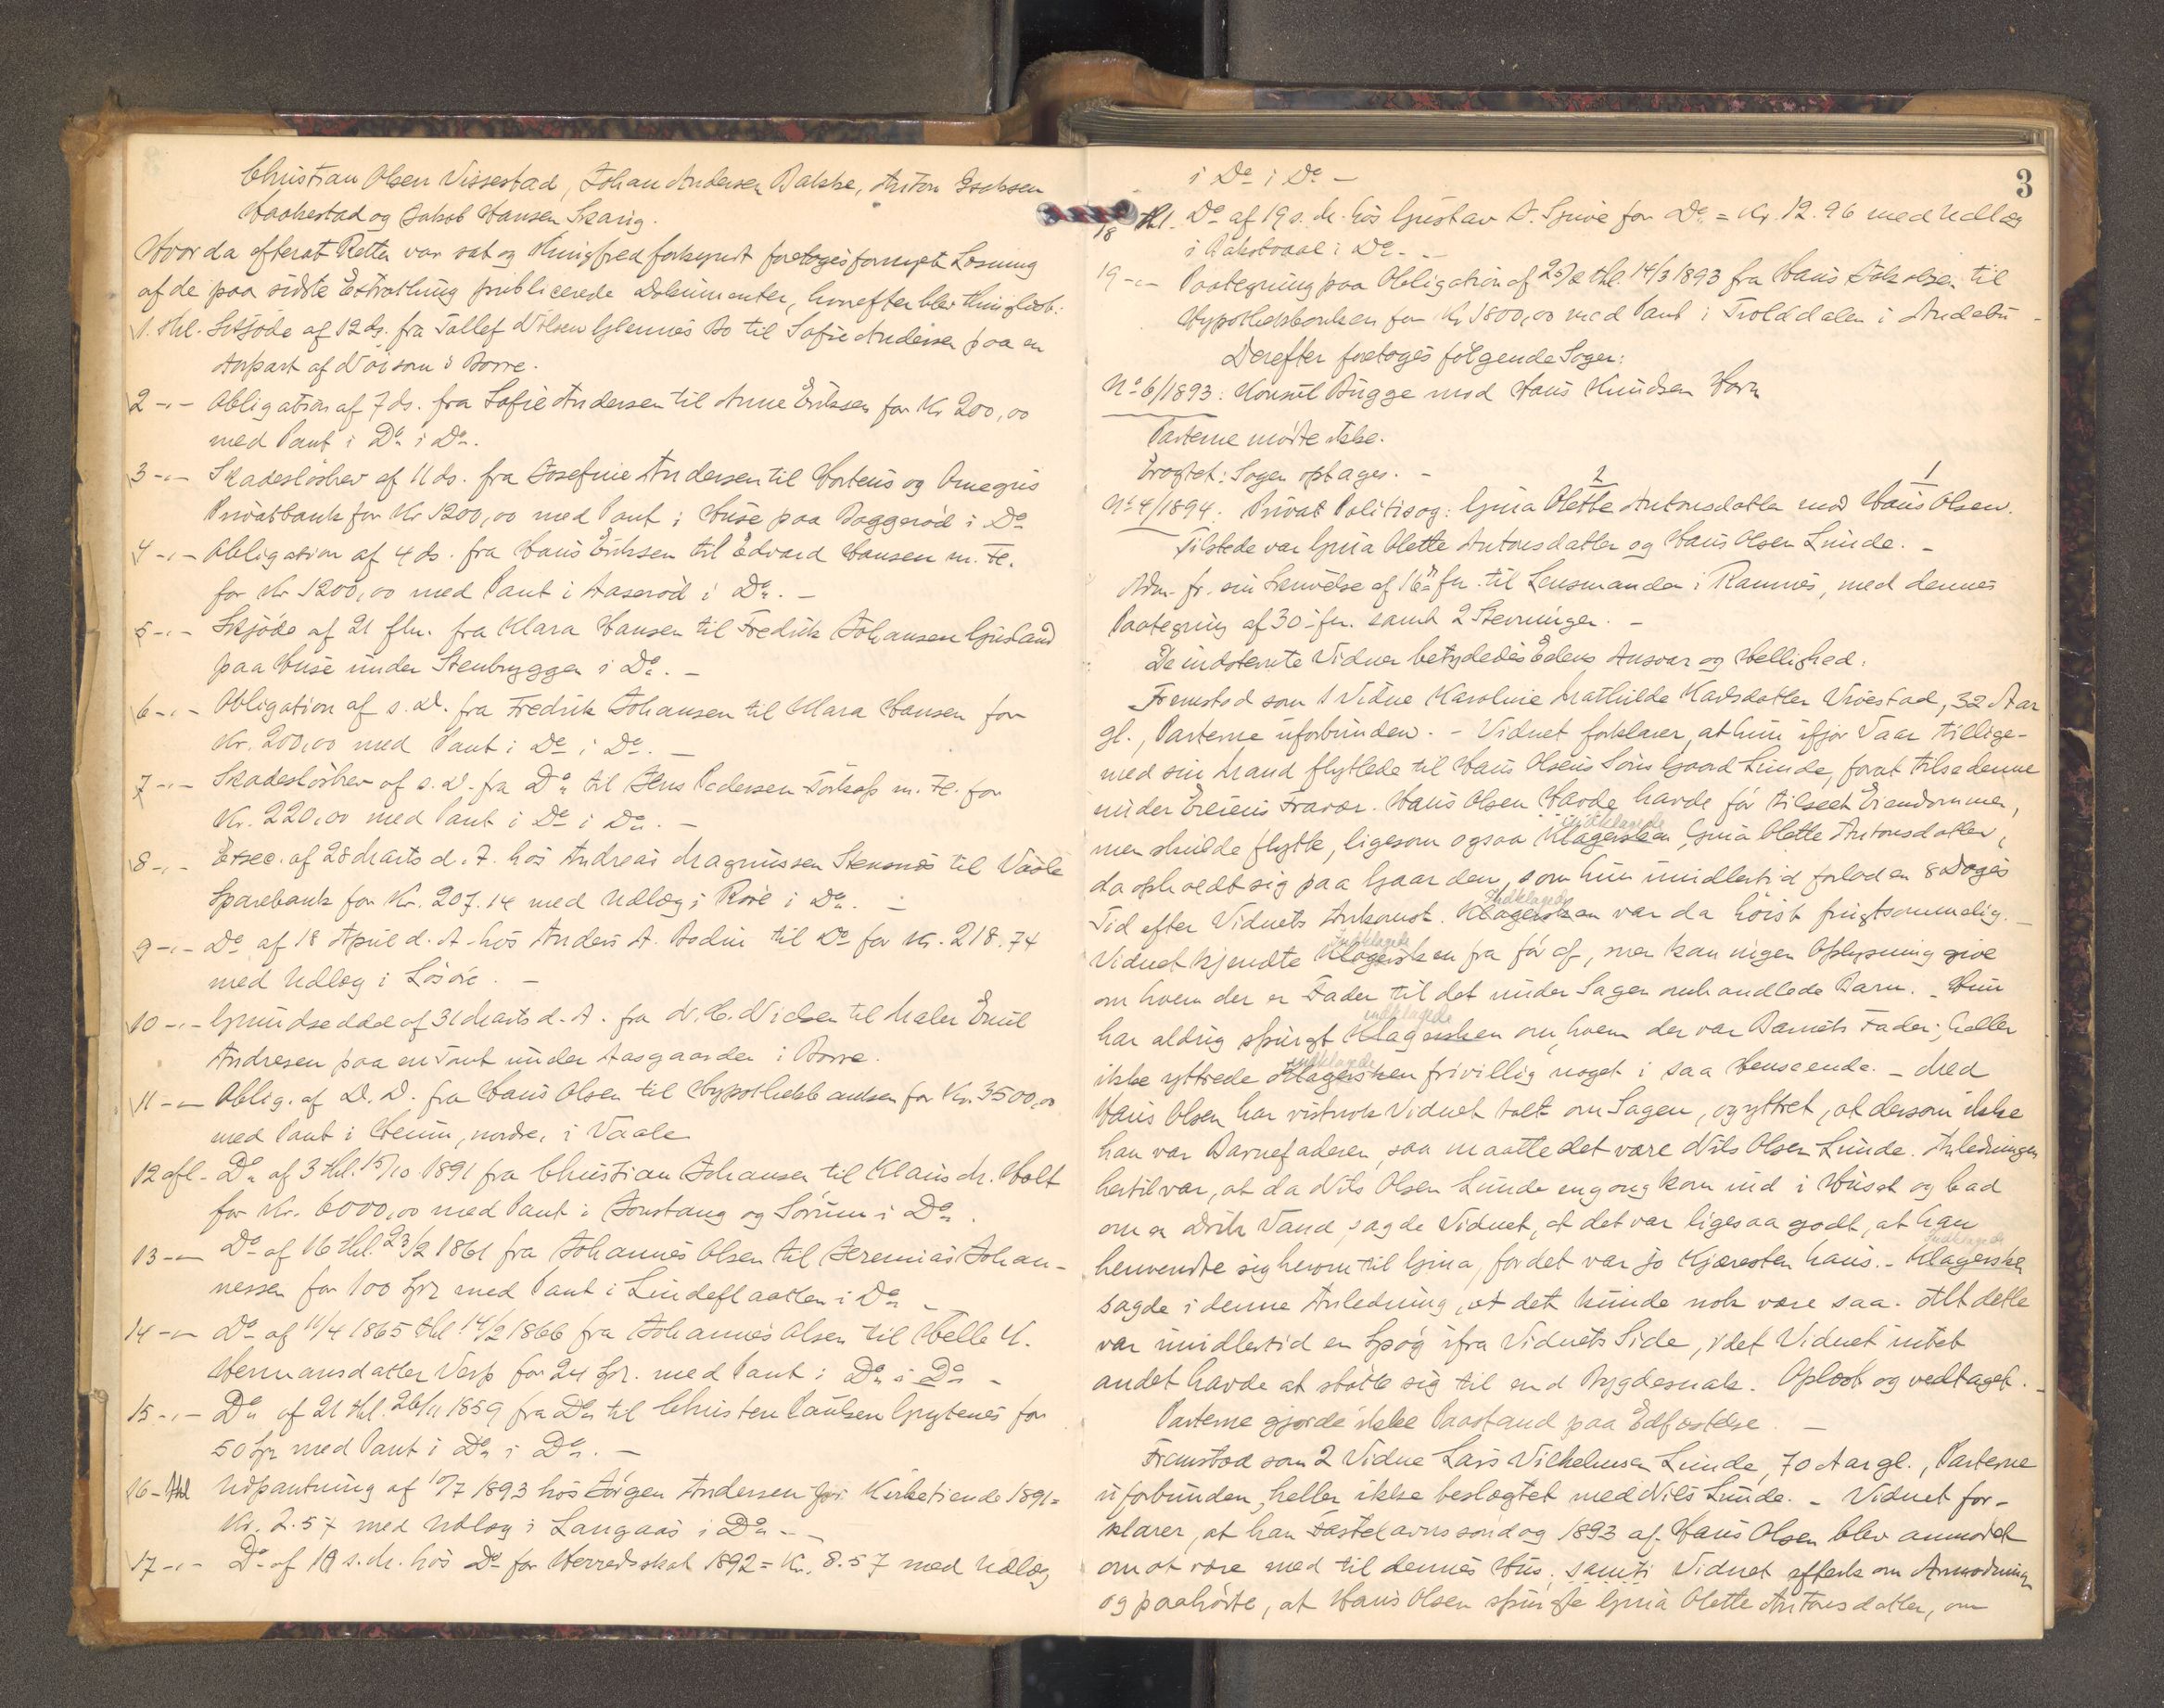 Christian Olsen Vissestad, Johan Andersen Bakke, Anton Isaksen
Haakestad og Jakob Hansen Skaug.
Hvorda efterat Retten var sat og Thingfred forkyndt foretoges fornyet Læsning
af de paa sidste Extrathing publicerede Dokumenter, hvorefter blev thinglæst:
1. thl. Skjøde af 12 ds. fra Tallef Nilsen Glennes Bo til Sofie Andersen paa en
Anpart af Nøisom i Borre.
2 -"- Obligation af 7 ds. fra Sofie Andersen til Anne Eriksen for Kr 200,00
med Pant i Do i Do.
3 -"- Skadesløsbrev af 11 ds. fra Josefine Andersen til Hortens og Omegns
Privatbank for Kr 1200,00 med Pant i Huse paa Baggerød i Do
4 -"- Obligation af 4 ds. fra Hans Eriksen til Edvard Hansen m. Fl.
for Kr 1200,00 med Pant i Aaserød i Do. -
5 -"- Skjøde af 21 f.m. fra Klara Hansen til Fredrik Johansen Gjesland
paa Huse under Stenbryggen i Do. -
6 -"- Obligation af s. D. fra Fredrik Johansen til Klara Hansen for
Kr. 200,00 med Pant i Do i Do. -
7 -"- Skadesløsbrev af s. D. fra Do til Jens Pedersen Torkop m. Fl. for
Kr. 220,00 med Pant i Do i Do. -
8 -"- Exsec. af 28 Marts d. A. hos Andreas Magnussen Stensnes til Vaale
Sparebank for Kr. 207.14 med Udlæg i Røre i Do. -
9 -"- Do af 18 April d. A. hos Anders A. Bodin til Do for Kr. 218.74
med Udlæg i Løsøre. -
10 -"- Grundseddel af 31 Marts d. A. fra N. C. Nielsen til Maler Emil
Andresen paa en Tomt under Aasgaarden i Borre.
11 -"- Oblig. af D. D. fra Hans Olsen til Hypothekbanken for Kr. 3500,00
med Pant i Heum, nordre, i Vaale
12 afl. Do af 3 thl. 15/10 1891 fra Christian Johansen til Klaus M. Holt
for Kr. 6000,00 med Pant i Jonstang og Sørum i Do.
13 -"- Do af 16 thl. 23/2 1861 fra Johannes Olsen til Jeremias Johan-
nessen for 100 Spd med Pant i Lindeflaatten i Do -
14 -"- Do af 11/4 1865 thl 14/2 1866 fra Johannes Olsen til Helle H.
Hermansdatter Verp for 24 Spd. med Pant i Do i Do -
15 -"- Do af 21 thl. 26/11 1859 fra Do til Christen Paulsen Grytenes for
50 Spd med Pant i Do i Do. -
16 - thl Udpantning af 10/7 1893 hos Jørgen Andersen for Kirketiende 1891 =
Kr. 2.57 med Udlæg i Langaas i Do -
17 -"- Do af 19 s. M. hos Do for Herredsskat 1892 = Kr. 8.57 med Udlæg
3
i Do i Do -
18 thl. Do af 19 s. M. hos Gustav A. for Do = Kr. 12.96 med Udlæg
i i Do. -
19 -"- Paategning paa Obligation af 25/2 thl. 14/3 1893 fra Hans Jakobsen til
Hypothekbanken for Kr 1800,00 med Pant i Trolddalen i Andebu -
Derefter foretoges følgende Sager:
No 6/1893: Konsul Bugge mod Hans Knudsen Horn
Parterne mødte ikke.
Eragtet: Sagen optages. -
2 1
No 4/1894. Privat Politisag: Gina Olette Antonsdatter mod Hans Olsen.
Tilstede var Gina Olette Antonsdatter og Hans Olsen Linde. -
Adm. fr. sin Henvelse af 16de f.m. til Lensmanden i Ramnes, med dennes
Paategning af 30 f.m. samt 2 Stevninger. -
De indstevnte Vidner betydedes Edens Ansvar og Hellighed.
Fremstod som 1 Vidne Karoline Mathilde Karlsdatter Vivestad, 32 Aar
gl., Parterne uforbunden. - Vidnet forklarer, at hun ifjor Vaar tillige-
med sin Mand flyttede til Hans Olsens Søns Gaard Linde, forat tilse denne
under Eierens Fravær. Hans Olsen Havde havde før tilseet Eiendommen,
indklagede
men skulde flytte, ligesom ogsaa Klagersken Gina Olette Antonsdatter,
da opholdt sig paa Gaarden, som hun imidlertid forlod en 8 Dages
Indklagede
Tid efter Vidnets Ankomst. Klagersken var da høist frugtsommelig. -
Indklagede
Vidnet kjendte Klagersken fra før af, men kan ingen Oplysning give
om hvem der er Fader til det under Sagen omhandlede Barn. - Hun
indklagede
har aldrig spurgt Klagersken om, hvem der var Barnets Fader; heller
indklagede
ikke yttrede Klagersken frivillig noget i saa Henseende. - Med
Hans Olsen har vistnok Vidnet talt om Sagen, og yttret, at dersom ikke
han var Barnefaderen, saa maatte det være Nils Olsen Linde. Anledningen
hertil var, at da Nils Olsen Linde engang kom ind i Huset og bad
om en Drik Vand, sagde Vidnet, at det var ligesaa godt, at han
Indklagede
henvendte sig herom til Gina, for det var jo Kjæresten hans. - Klagersken
sagde i denne Anledning, at det kunde nok være saa. Alt dette
var imidlertid en Spøg ifra Vidnets Side, idet Vidnet intet
andet havde at støtte sig til end Bygdesnak. Oplæst og vedtaget. -
Parterne gjorde ikke Paastand paa Edfæstelse. -
Fremstod som 2 Vidne Lars Vilhelmsen Linde, 70 Aar gl., Parterne
uforbunden, heller ikke beslægtet med Nils Linde. - Vidnet for-
klarer, at han Fastelavnssøndag 1893 af Hans Olsen blev anmodet
om at være med til dennes Hus, samt i Vidnet efterk om Anmodningen
og paahørte, at Hans Olsen spurgte Gina Olette Antonsdatter, om